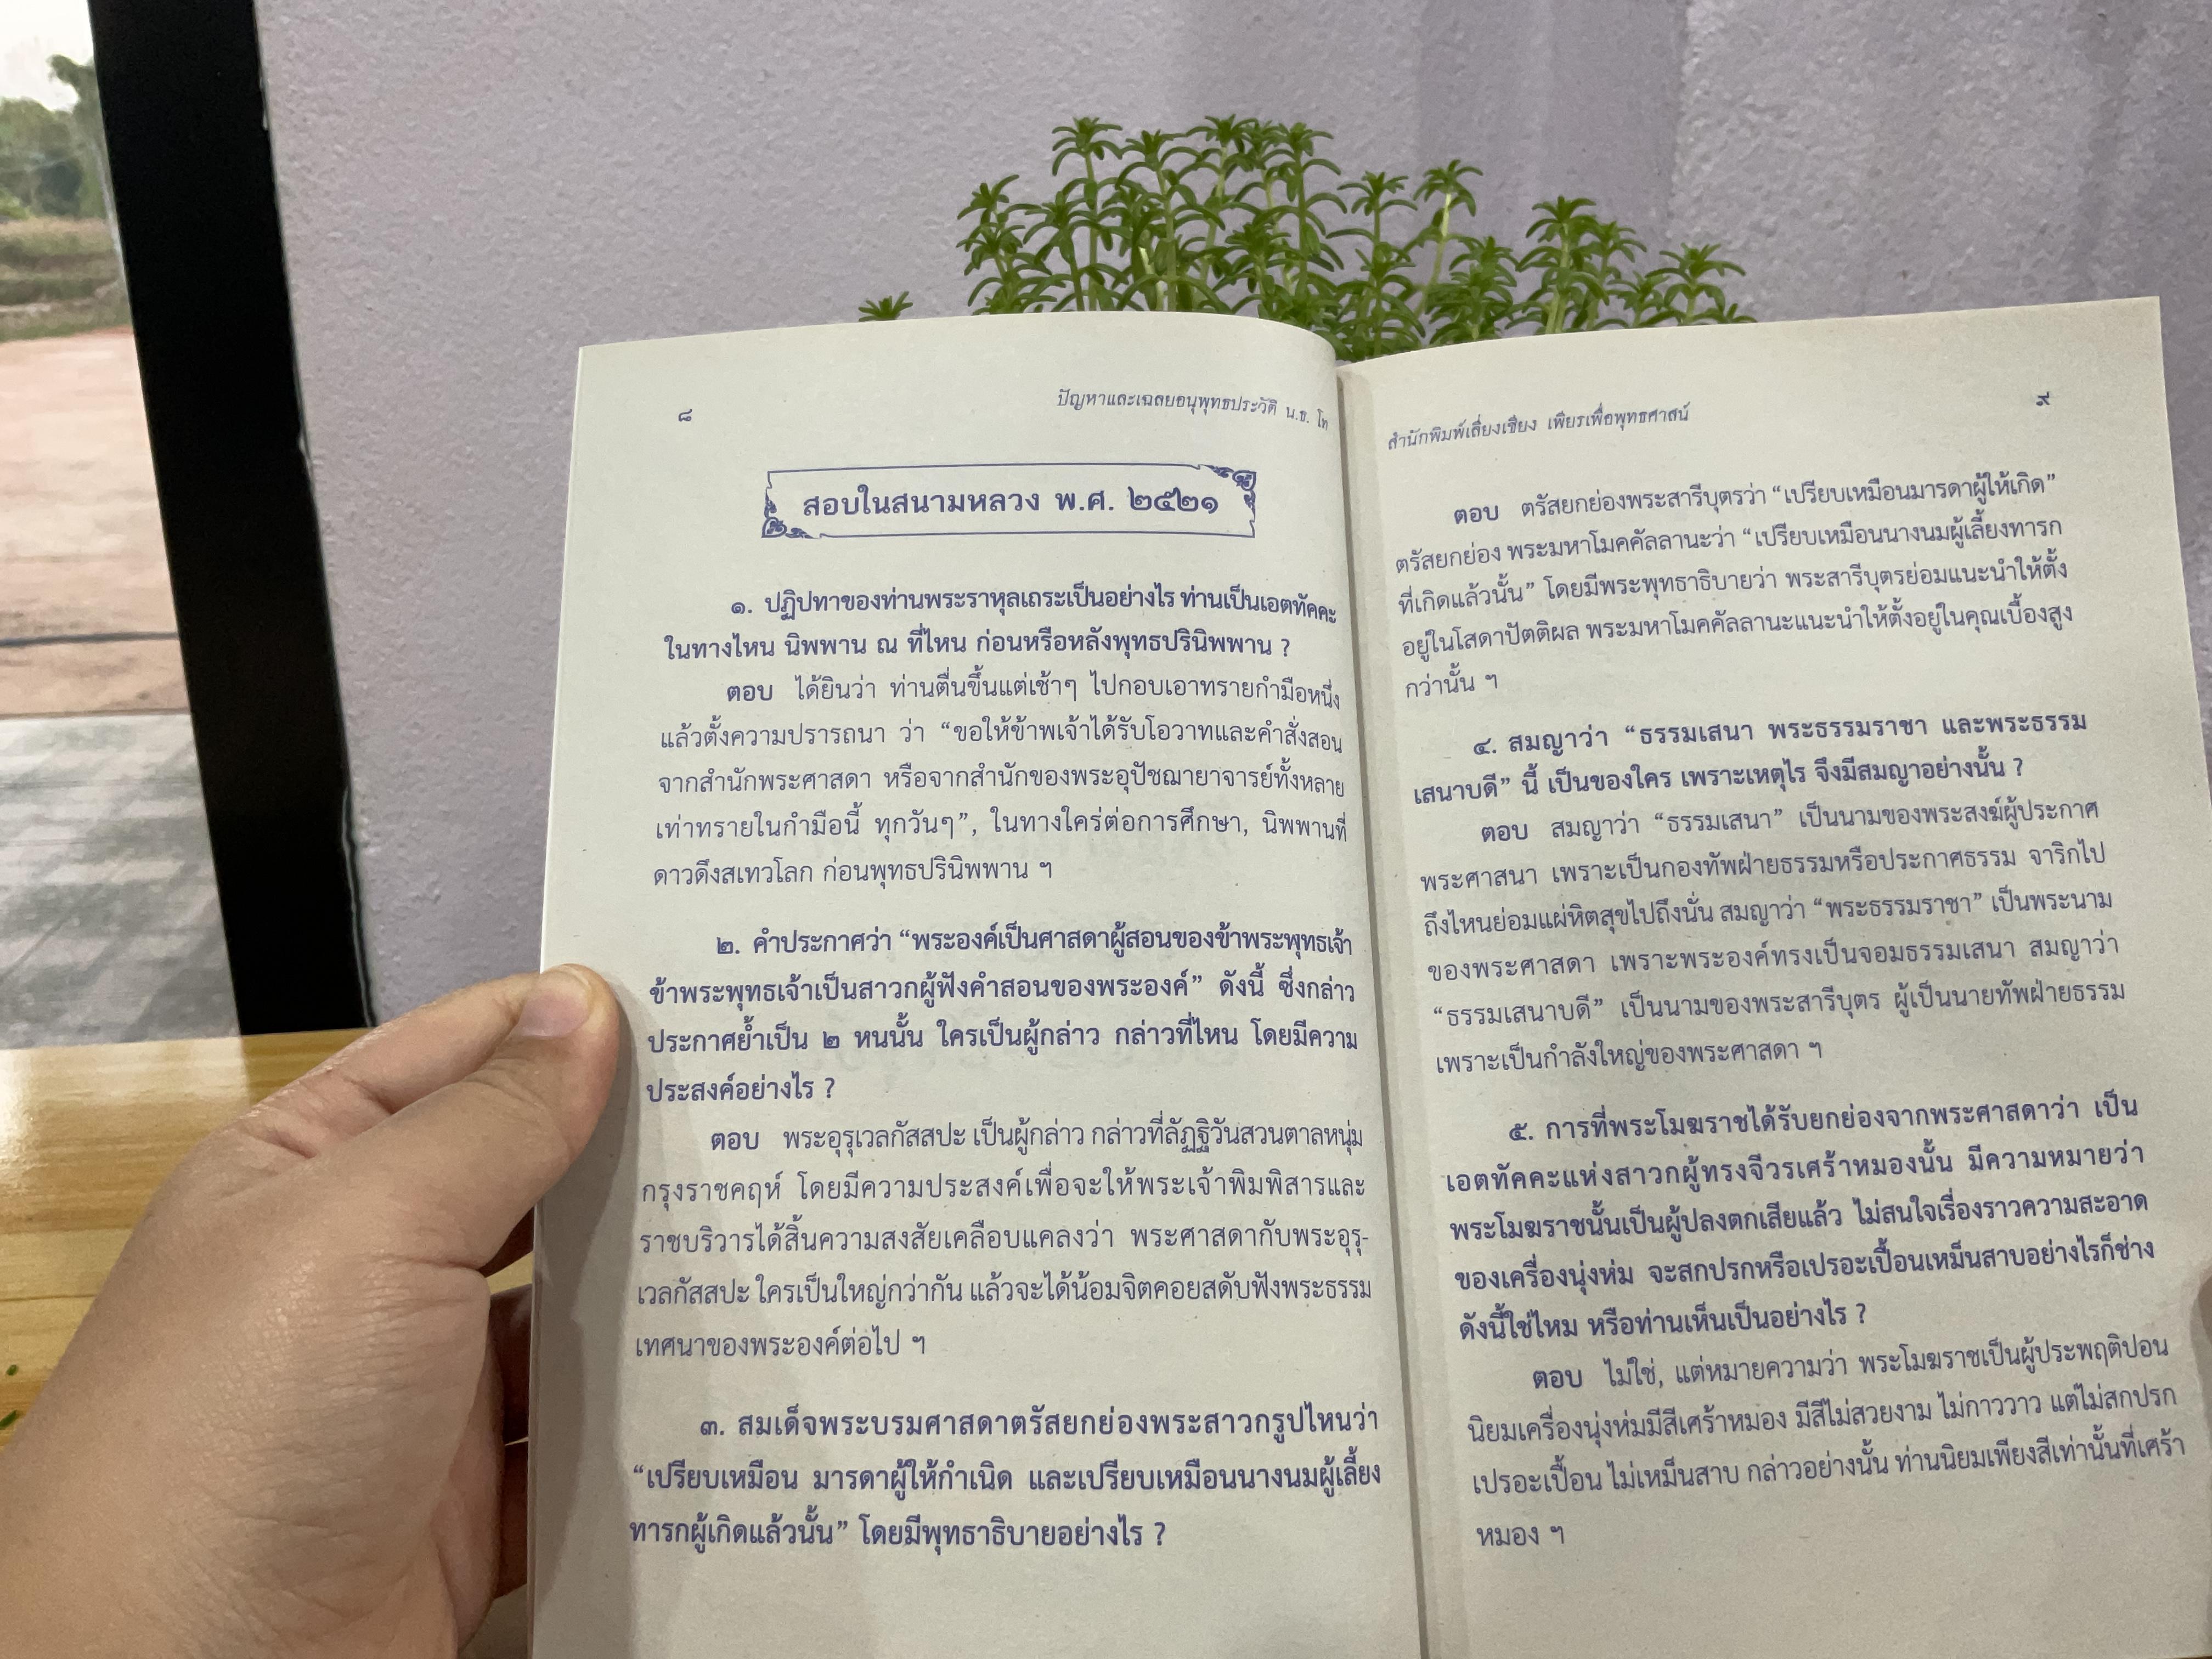 ๘
ปัญหาและเฉลยอนุพุทธประวัติ น.ธ. โท
สอบในสนามหลวง พ.ศ. ๒๕๒๑
๑. ปฏิปทาของท่านพระราหุลเถระเป็นอย่างไร ท่านเป็นเอตทัคคะ
ในทางไหน นิพพาน ณ ที่ไหน ก่อนหรือหลังพุทธปรินิพพาน ?
ตอบ ได้ยินว่า ท่านตื่นขึ้นแต่เช้าๆ ไปกอบเอาทรายกำมือหนึ่ง
แล้วตั้งความปรารถนา ว่า “ขอให้ข้าพเจ้าได้รับโอวาทและคำสั่งสอน
จากสำนักพระศาสดา หรือจากสำนักของพระอุปัชฌายาจารย์ทั้งหลาย
เท่าทรายในกำมือนี้ ทุกวันๆ”, ในทางใคร่ต่อการศึกษา, นิพพานที่
ดาวดึงสเทวโลก ก่อนพุทธปรินิพพาน ฯ
๒. คำประกาศว่า “พระองค์เป็นศาสดาผู้สอนของข้าพระพุทธเจ้า
ข้าพระพุทธเจ้าเป็นสาวกผู้ฟังคำสอนของพระองค์” ดังนี้ ซึ่งกล่าว
ประกาศย้ำเป็น ๒ หนนั้น ใครเป็นผู้กล่าว กล่าวที่ไหน โดยมีความ
ประสงค์อย่างไร ?
ตอบ พระอุรุเวลกัสสปะ เป็นผู้กล่าว กล่าวที่ลัฏฐิวันสวนตาลหนุ่ม
กรุงราชคฤห์ โดยมีความประสงค์เพื่อจะให้พระเจ้าพิมพิสารและ
ราชบริวารได้สิ้นความสงสัยเคลือบแคลงว่า พระศาสดากับพระอุรุ-
เวลกัสสปะ ใครเป็นใหญ่กว่ากัน แล้วจะได้น้อมจิตคอยสดับฟังพระธรรม
เทศนาของพระองค์ต่อไป ฯ
๓. สมเด็จพระบรมศาสดาตรัสยกย่องพระสาวกรูปไหนว่า
“เปรียบเหมือน มารดาผู้ให้กำเนิด และเปรียบเหมือนนางนมผู้เลี้ยง
ทารกผู้เกิดแล้วนั้น” โดยมีพุทธาธิบายอย่างไร ?
สำนักพิมพ์เลี่ยงเชียง เพียรเพื่อพุทธศาสน์
๙
ตอบ ตรัสยกย่องพระสารีบุตรว่า “เปรียบเหมือนมารดาผู้ให้เกิด”
ตรัสยกย่อง พระมหาโมคคัลลานะว่า “เปรียบเหมือนนางนมผู้เลี้ยงทารก
ที่เกิดแล้วนั้น” โดยมีพระพุทธาธิบายว่า พระสารีบุตรย่อมแนะนำให้ตั้ง
อยู่ในโสดาปัตติผล พระมหาโมคคัลลานะแนะนำให้ตั้งอยู่ในคุณเบื้องสูง
กว่านั้น ฯ
๔. สมญาว่า “ธรรมเสนา พระธรรมราชา และพระธรรม
เสนาบดี” นี้ เป็นของใคร เพราะเหตุไร จึงมีสมญาอย่างนั้น ?
ตอบ สมญาว่า “ธรรมเสนา” เป็นนามของพระสงฆ์ผู้ประกาศ
พระศาสนา เพราะเป็นกองทัพฝ่ายธรรมหรือประกาศธรรม จาริกไป
ถึงไหนย่อมแผ่หิตสุขไปถึงนั่น สมญาว่า “พระธรรมราชา” เป็นพระนาม
ของพระศาสดา เพราะพระองค์ทรงเป็นจอมธรรมเสนา สมญาว่า
“ธรรมเสนาบดี” เป็นนามของพระสารีบุตร ผู้เป็นนายทัพฝ่ายธรรม
เพราะเป็นกำลังใหญ่ของพระศาสดา ฯ
๕. การที่พระโมฆราชได้รับยกย่องจากพระศาสดาว่า เป็น
เอตทัคคะแห่งสาวกผู้ทรงจีวรเศร้าหมองนั้น มีความหมายว่า
พระโมฆราชนั้นเป็นผู้ปลงตกเสียแล้ว ไม่สนใจเรื่องราวความสะอาด
ของเครื่องนุ่งห่ม จะสกปรกหรือเปรอะเปื้อนเหม็นสาบอย่างไรก็ช่าง
ดังนี้ใช่ไหม หรือท่านเห็นเป็นอย่างไร ?
ตอบ ไม่ใช่, แต่หมายความว่า พระโมฆราชเป็นผู้ประพฤติปอน
นิยมเครื่องนุ่งห่มมีสีเศร้าหมอง มีสีไม่สวยงาม ไม่กาววาว แต่ไม่สกปรก
เปรอะเปื้อน ไม่เหม็นสาบ กล่าวอย่างนั้น ท่านนิยมเพียงสีเท่านั้นที่เศร้า
หมอง ฯ